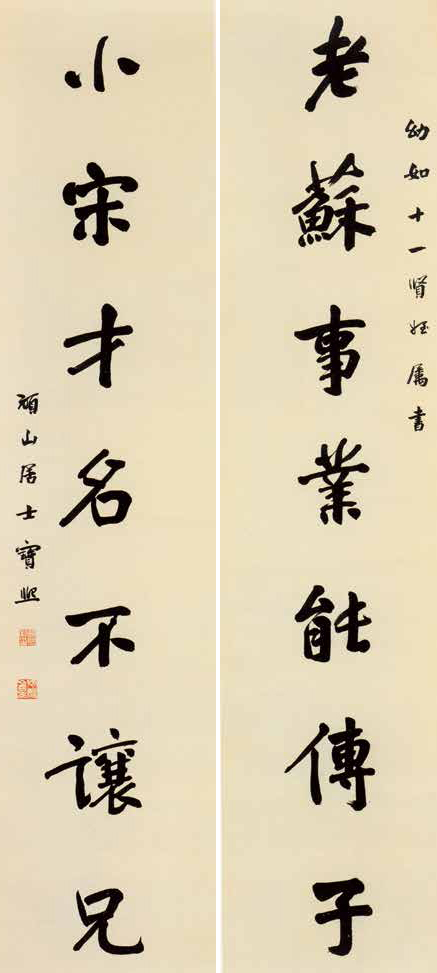 幼如十一賢姪属書
老蘇事業能傳子
小宋才名不讓兄
頑山居士寶熙